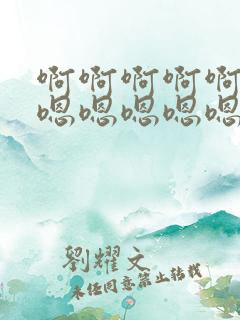 啊啊啊啊啊
嗯嗯嗯嗯嗯
劉耀文
未经同意禁止转载